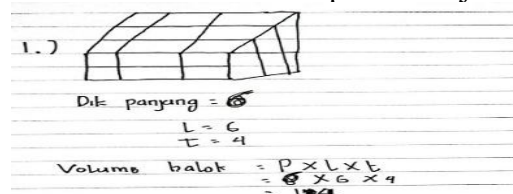 1.)
Dik panjang = 6
L = 6
t = 4
Volume balok = P x L x t
= 6 x 6 x 4
=